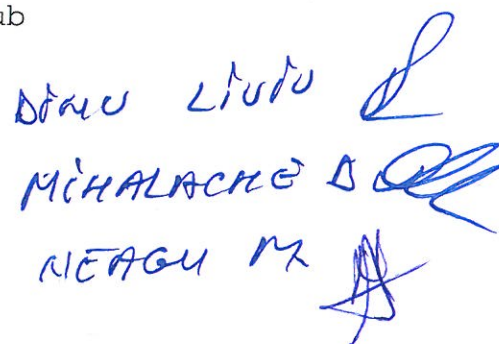 ub
DINU LIVIU
MIHALACHE D
NEAGU M